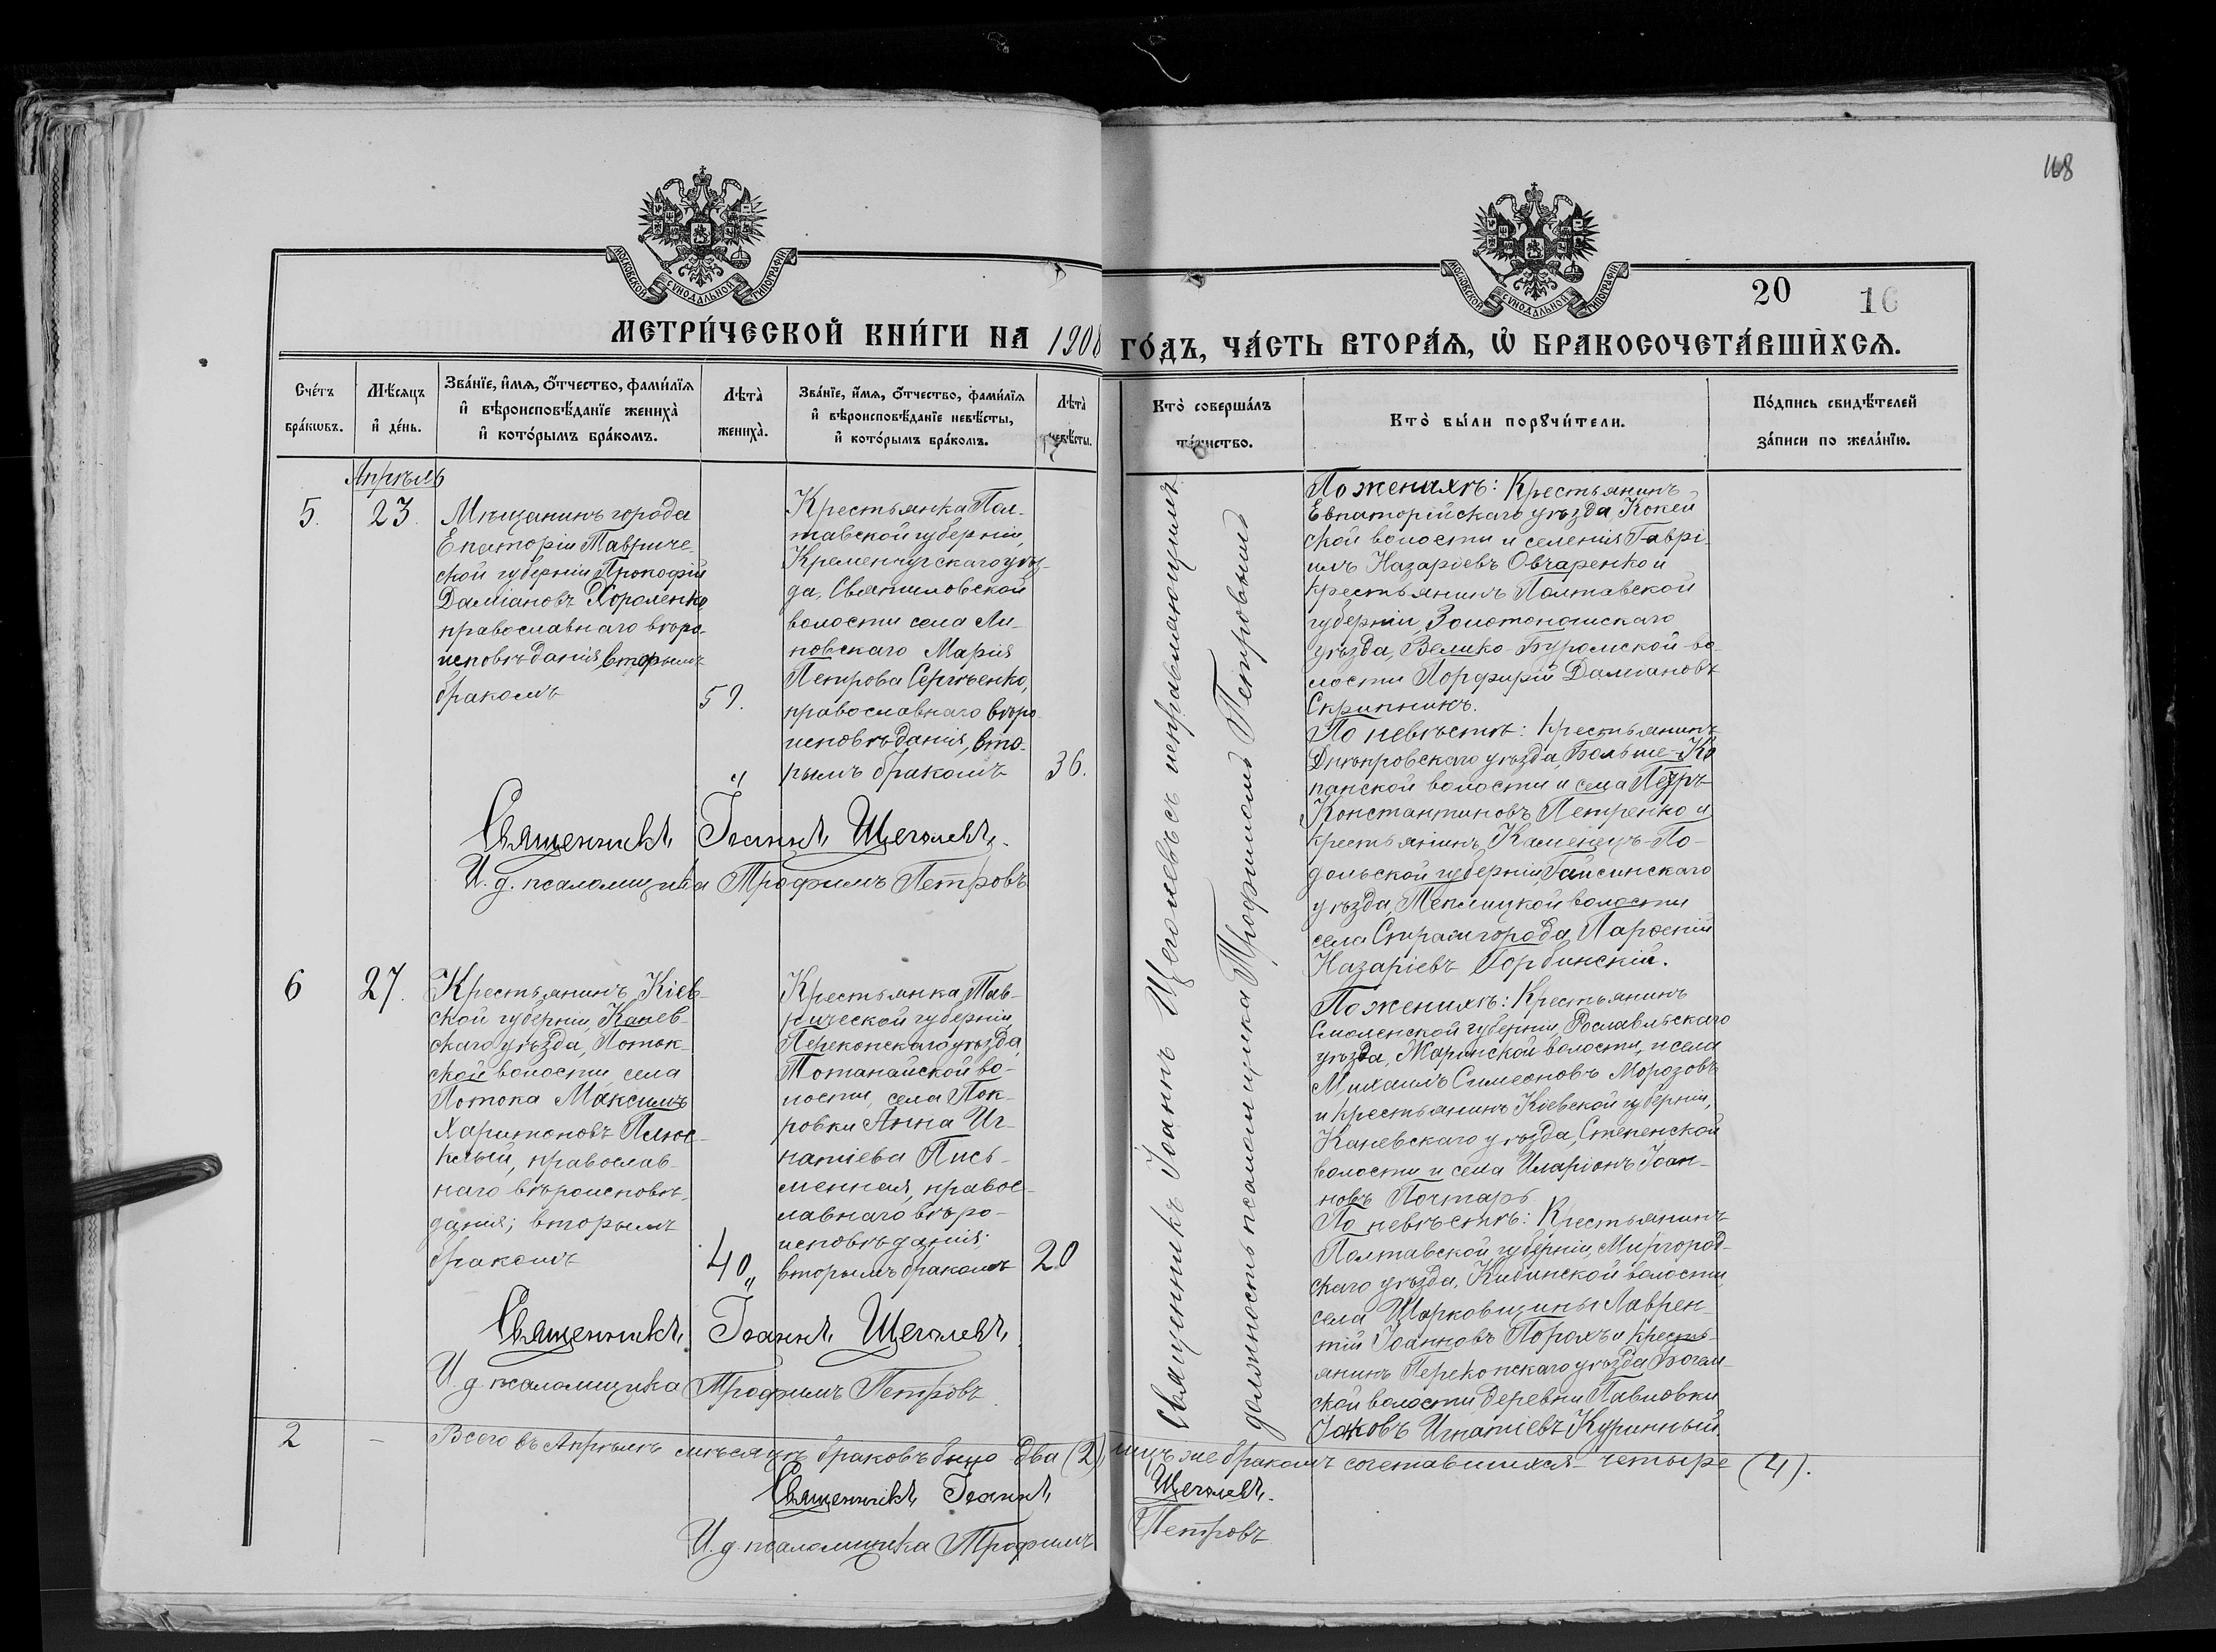 168
МОСКОВСКОЙ СУНОДАЛЬНОЙ ТИПОГРАФІИ
МОСКОВСКОЙ СУНОДАЛЬНОЙ ТИПОГРАФІИ
20 16
МЕТРИ́ЧЕСКОЙ КНИ́ГИ НА 1908 ГО́ДЪ, ЧА́СТЬ ВТОРА́Ѧ, Ѽ БРАКОСОЧЕТА́ВШИХСѦ.
Сче́тъ
бра́кѡвъ.
Мѣ́сѧцъ
и҆ де́нь.
Зва́нїе, и҆́мѧ, ѻ҆́тчество, фами́лїѧ
и҆ вѣроисповѣ́данїе жениха̀
и҆ кото́рымъ бра́комъ.
Лѣта̀
жениха̀.
Зва́нїе, и҆́мѧ, ѻ҆́тчество, фами́лїѧ
и҆ вѣроисповѣ́данїе невѣ́сты,
и҆ кото́рымъ бра́комъ.
Лѣта̀
невѣ́сты.
Кто̀ соверша́лъ
та́инство.
Кто̀ бы́ли порꙋчи́тели.
По́дпись свидѣ́телей
за́писи по жела́нїю.
Апрѣль
5.
23.
Мѣщанинъ города
Евпаторіи Тавриче-
ской губерніи Прокофій
Даміановъ Хороленко
православнаго вѣро-
исповѣданія, вторымъ
бракомъ
59.
Крестьянка Пол-
тавской губерніи,
Кременчугскаго уѣз-
да, Святиловской
волости села Ли-
повскаго Марія
Петрова Сергѣенко,
православнаго вѣро-
исповѣданія, вто-
рымъ бракомъ
36.
Священникъ Іоаннъ Щеголевъ.
И. д. псаломщика Трофимъ Петровъ
Священникъ Іоаннъ Щеголевъ съ исправляющимъ
должность псаломщика Трофимомъ Петровымъ
По женихѣ: Крестьянинъ
Евпаторійскаго уѣзда, Кокей
ской волости и селенія Гаврі-
илъ Назаріевъ Овчаренко и
крестьянинъ Полтавской
губерніи, Золотоношскаго
уѣзда, Велико-Буромской во-
лости Порфирій Даміановъ
Скрипникъ.
По невѣстѣ: Крестьянинъ
Днѣпровскаго уѣзда, Больше-Ко
панской волости и села Петръ
Константиновъ Петренко и
крестьянинъ Каменецъ-По-
дольской губерніи, Гайсинскаго
уѣзда, Теплицкой волости
села Стратгорода Парфеній
Назаріевъ Горбинскій.
6
27.
Крестьянинъ Кіев-
ской губерніи, Канев-
скаго уѣзда, Поток-
ской волости, села
Потока Максимъ
Харитоновъ
православ-
наго вѣроисповѣ-
данія; вторымъ
бракомъ
40
Крестьянка Тав-
рической губерніи,
Перекопскаго уѣзда,
Тотанайской во-
лости, села Пок-
ровки Анна Иг-
натіева Пись-
менная, правос-
лавнаго вѣро-
исповѣданія;
вторымъ бракомъ
20
Священникъ Іоаннъ Щеголевъ
И. д. псаломщика Трофимъ Петровъ
По женихѣ: Крестьянинъ
Смоленской губерніи, Рославльскаго
уѣзда, волости, и села
Михаилъ Симеоновъ Морозовъ
и крестьянинъ Кіевской губерніи,
Каневскаго уѣзда, Степенской
волости и села Иларіонъ Іоан-
новъ Почтарь
По невѣстѣ: Крестьянинъ
Полтавской губерніи, Миргород-
скаго уѣзда, Кибинской волости,
села Шарковщины Лаврен-
тій Іоанновъ Порохъ и кресть-
янинъ Перекопскаго уѣзда Богем-
ской волости, деревни Павловки
Іаковъ Игнатіевъ Куринный
2
–
Всего въ Апрѣлѣ мѣсяцѣ браковъ было два (2), лицъ же бракомъ сочетавшихся – четыре (4).
Священникъ Іоаннъ Щеголевъ.
И. д. псаломщика Трофимъ Петровъ